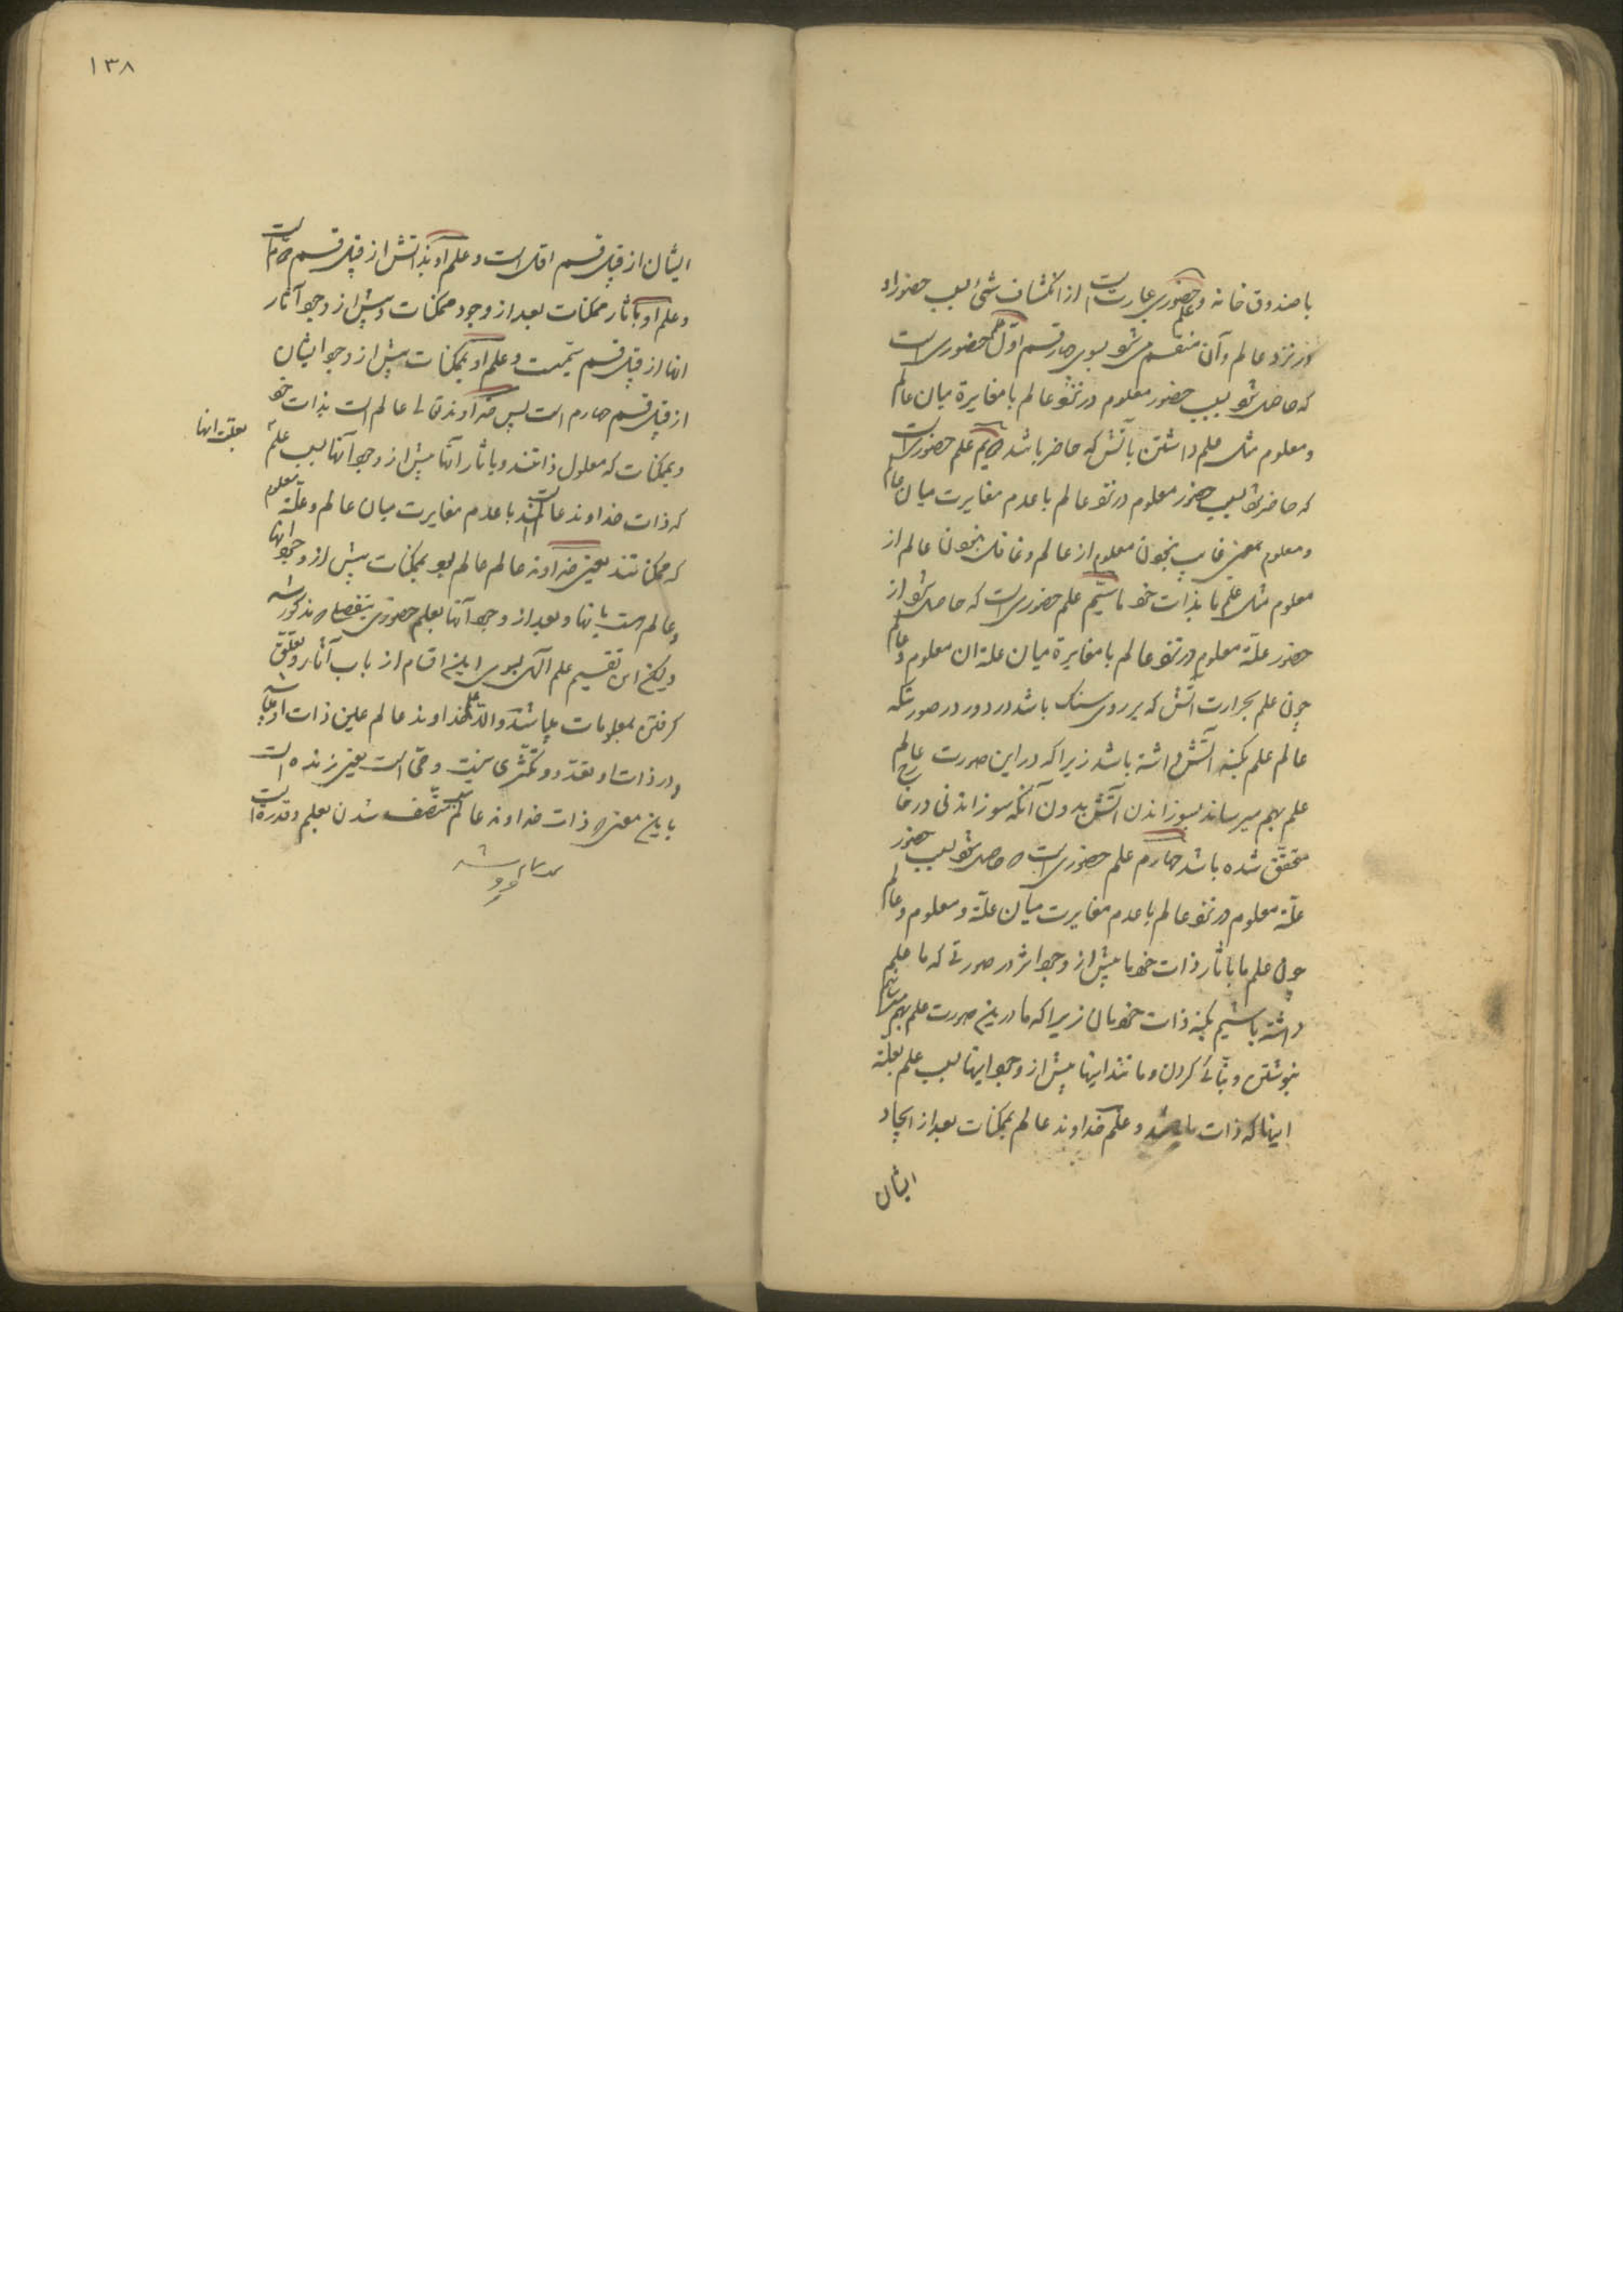 با صندوق خانه و علم حضوری عبارتست از انکشاف شیٔ بسبب حضور او
در نزد عالم و آن منقسم می شود بسوی چهار قسم اوّل علم حضوری است
که حاصل شود بسبب حضور معلوم در نزد عالم با مغایرة میان عالم
و معلوم مثل علم داشتن بآتش که حاضر باشد دویم علم حضوریست
که حاضر شود بسبب حضور معلوم در نزد عالم با عدم مغایرت میان عالم
و معلوم بمعنی غایب نبودن معلوم از عالم و غافل نبودن عالم از
معلوم مثل علم ما بذات خود ما سیّم علم حضوری است که حاصل شود از
حضور علّة معلوم در نزد عالم با مغایرة میان علة ان معلوم و عالم
چون علم بحرارت آتش که بر روی سنک باشد در دور در صورتیکه
عالم علم بکنه آتش داشته باشد زیرا که در این صورت عالم
علم بهم میرساند بسوزاندن آتش بدون آنکه سوزاندنی در خارج
متحقّق شده باشد چهارم علم حضوری است که حاصل شود بسبب حضور
علّة معلوم در نزد عالم با عدم مغایرت میان علّة و معلوم و عالم
چون علم ما بآثار ذات خود ما پیش از وجود اثر در صورتی که ما علم
داشته باشیم بکنه ذات خودمان زیرا که ما درین صورت علم بهم میرسانیم
بنوشتن و بنّائی کردن و مانند اینها پیش از وجود اینها بسبب علم بعلّة
اینها که ذات ما باشد و علم خداوند عالم بممکنات بعد از ایجاد
ایشان
۱۳۸
ایشان از قبیل قسم اوّل است و علم او بذاتش از قبیل قسم دویم است
و علم او بآثار ممکنات بعد از وجود ممکنات و پیش از وجود آثار
انها از قبیل قسم سیّمست و علم او بممکنات پیش از وجود ایشان
از قبیل قسم چهارم است پس خداوند تعالی عالم است بذات خود
و بممکنات که معلول ذاتند و بآثار آنها پیش از وجود آنها بسبب علم
بعلّت انها
که ذات خداوند عالم است با عدم مغایرت میان عالم و علّة معلوم
که ممکناتند یعنی خداوند عالم عالم بود بممکنات پیش از وجود انها
و عالم است بانها و بعد از وجود آنها بعلم حضوری بتفصیل که مذکور شد
ولیکن این تقسیم علم الهی بسوی این اقسام از باب آثار و تعلّق
کرفتن بمعلومات میباشد والّا علم خداوند عالم عین ذات او میباشد
و در ذات او تعدّد و تکثّری نیست و حیّ است یعنی زنده است
باین معنی که ذات خداوند عالم متّصف شدن بعلم و قدرة است